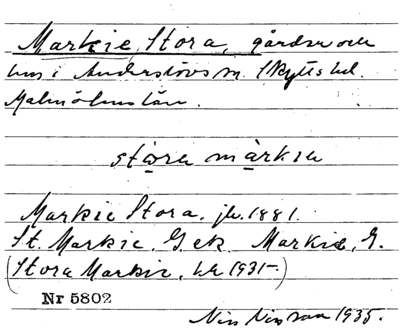 Markie, Stora, gårdar och
hus i Anderslövs sn. Skytts hd.
Malmöhus län.
stora markia
Markie Stora, jb. 1881.
St. Markie, G. ek. Markie, G.
(Stora Markie, 1931-)
Nr 5802
Nils Nilsson 1935.